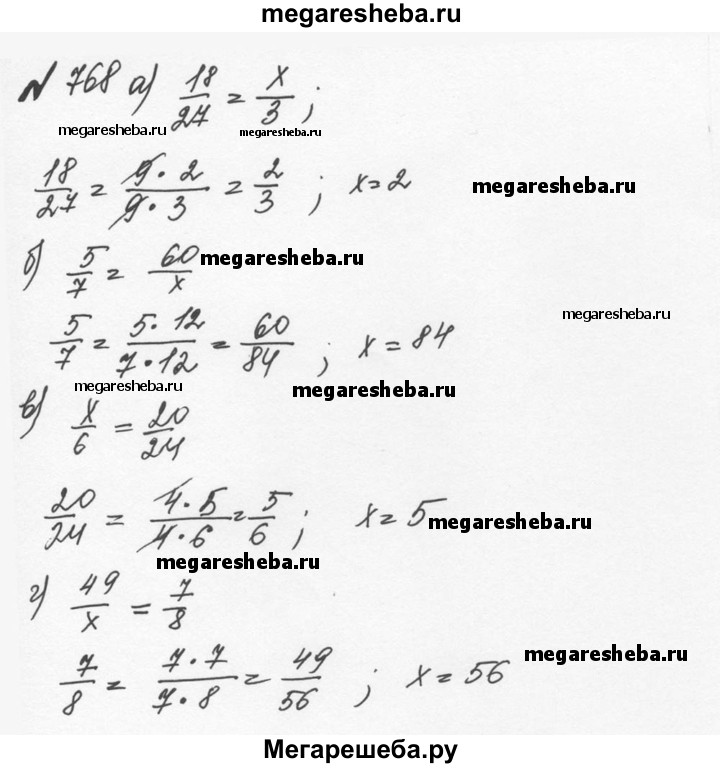 megaresheba.ru
№ 768 а) 18/27 = x/3 ;
megaresheba.ru megaresheba.ru
18/27 = 9·2/9·3 = 2/3 ; x=2 megaresheba.ru
б) 5/7 = 60/x megaresheba.ru
megaresheba.ru
5/7 = 5·12/7·12 = 60/84 ; x=84
megaresheba.ru megaresheba.ru
в) x/6 = 20/24
20/24 = 4·5/4·6 = 5/6 ; x=5 megaresheba.ru
megaresheba.ru
г) 49/x = 7/8
7/8 = 7·7/7·8 = 49/56 ; x=56 megaresheba.ru
Мегарешеба.ру